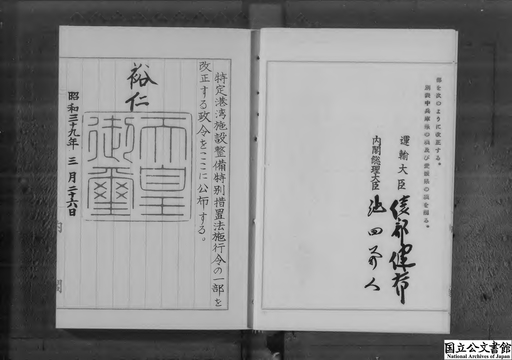 特定港湾施設整備特別措置法施行令の一部を
改正する政令をここに公布する。
裕仁
天皇
御璽
昭和三十九年三月二十六日
内閣
表を次のように改正する。
運輸大臣 綾部健太郎
内閣総理大臣 池田勇人
国立公文書館
National Archives of Japan